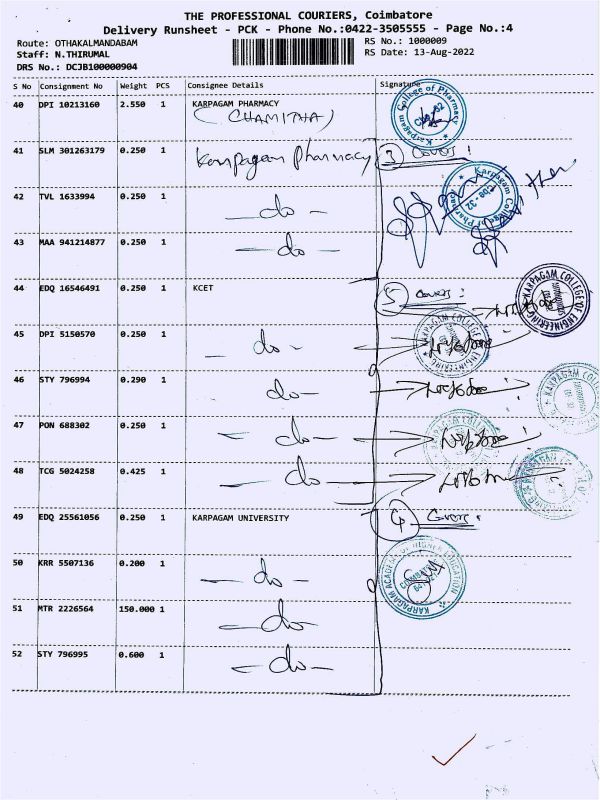 THE PROFESSIONAL COURIERS, Coimbatore
Delivery Runsheet - PCK - Phone No.:0422-3505555 - Page No.:4
Route: OTHAKALMANDABAM
RS No.: 1000009
Staff: N.THIRUMAL
RS Date: 13-Aug-2022
DRS No.: DCJB100000904
S No Consignment No Weight PCS Consignee Details Signature
40 DPI 10213160 2.550 1 KARPAGAM PHARMACY
(CHAMITHA)
Karpagam College of Pharmacy
COB-32
41 SLM 301263179 0.250 1 Karpagam pharmacy 3 Covers :
42 TVL 1633994 0.250 1 -do-
Karpagam College of Pharmacy
COB-32
43 MAA 941214877 0.250 1 -do-
44 EDQ 16546491 0.250 1 KCET 5 Covers :
KARPAGAM COLLEGE OF ENGINEERING
45 DPI 5150570 0.250 1 -do-
KARPAGAM COLLEGE
46 STY 796994 0.290 1 -do-
KARPAGAM COL
47 PON 688302 0.250 1 -do-
48 TCG 5024258 0.425 1 -do-
49 EDQ 25561056 0.250 1 KARPAGAM UNIVERSITY 4 Covers :
50 KRR 5507136 0.200 1 -do-
KARPAGAM ACADEMY OF HIGHER EDUCATION
51 MTR 2226564 150.000 1 -do-
52 STY 796995 0.600 1 -do-